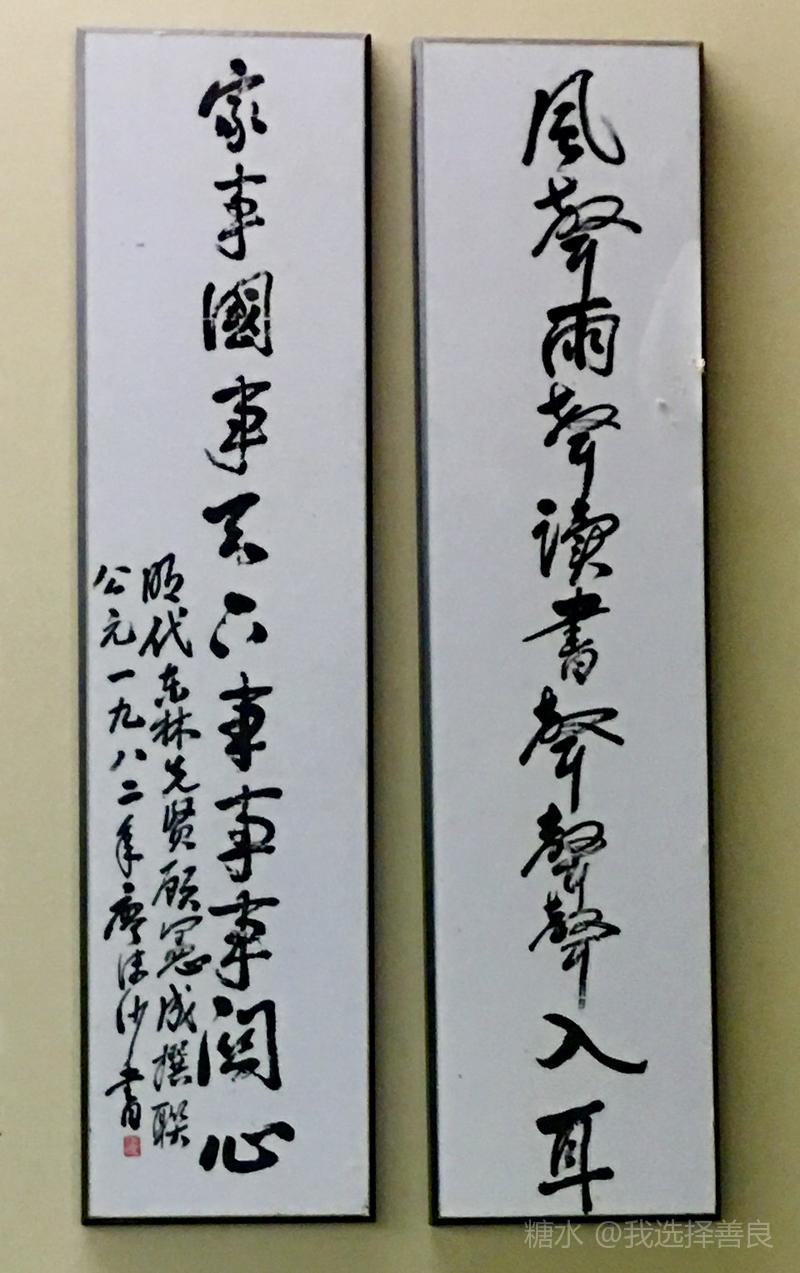 風聲雨聲讀書聲聲聲入耳
家事國事天下事事事関心
明代东林先贤顾宪成撰联
公元一九八二年廖沫沙书
糖水 @我选择善良